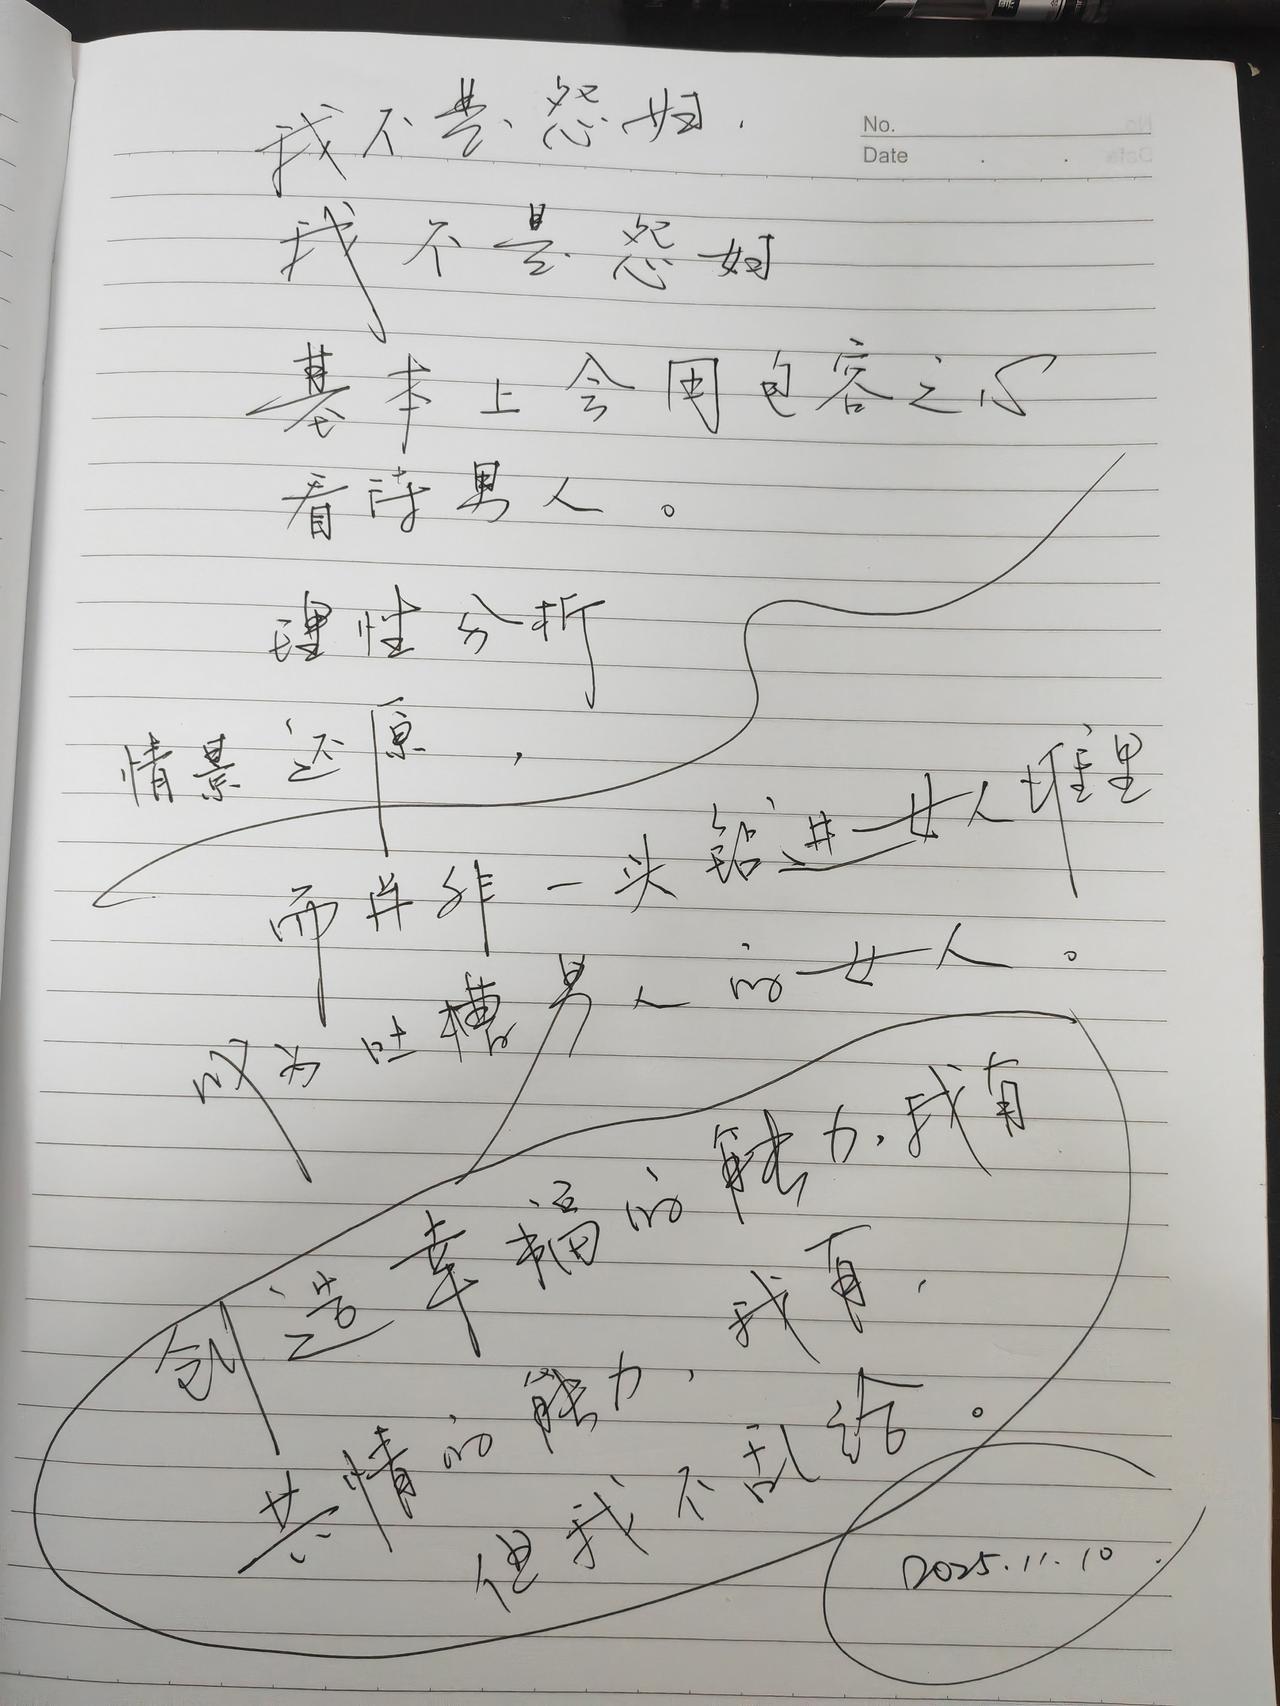 No.
Date
我不是怨妇.
我不是怨妇
基本上会用包容之心
看待男人。
理性分析
情景还原,
而并非一头钻进女人堆里
成为吐槽男人的女人。
创造幸福的能力,我有
共情的能力,我有,
但我不乱给。
2025.11.10.